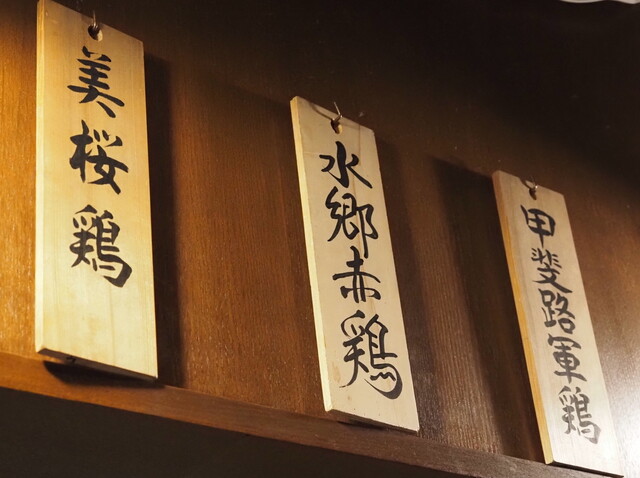 美桜鶏
水郷赤鶏
甲斐路軍鶏